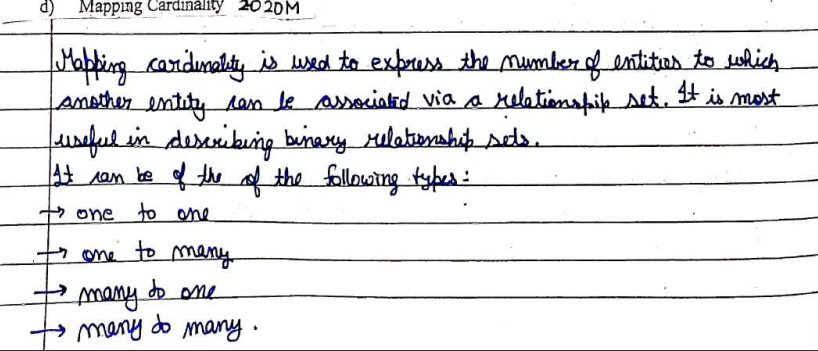 d) Mapping Cardinality 2020M
Mapping cardinality is used to express the number of entities to which
another entity can be associated via a relationship set. It is most
useful in describing binary relationship sets.
It can be of the of the following types :
→ one to one
→ one to many
→ many to one
→ many to many .